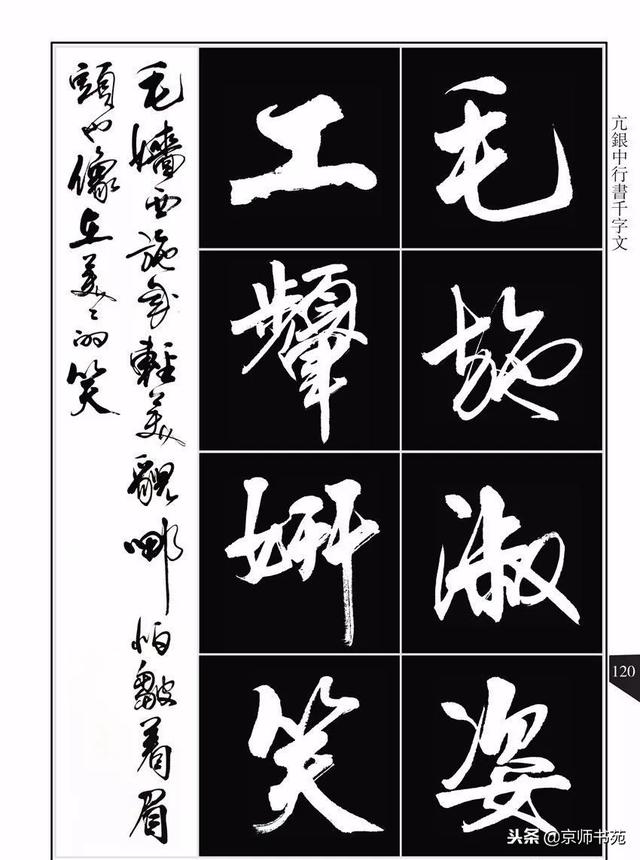 亢銀中行書千字文
毛施淑姿
工顰妍笑
毛嬙西施年輕美貌哪怕皺着眉
頭也像在美〻的笑
120
头条@京师书苑